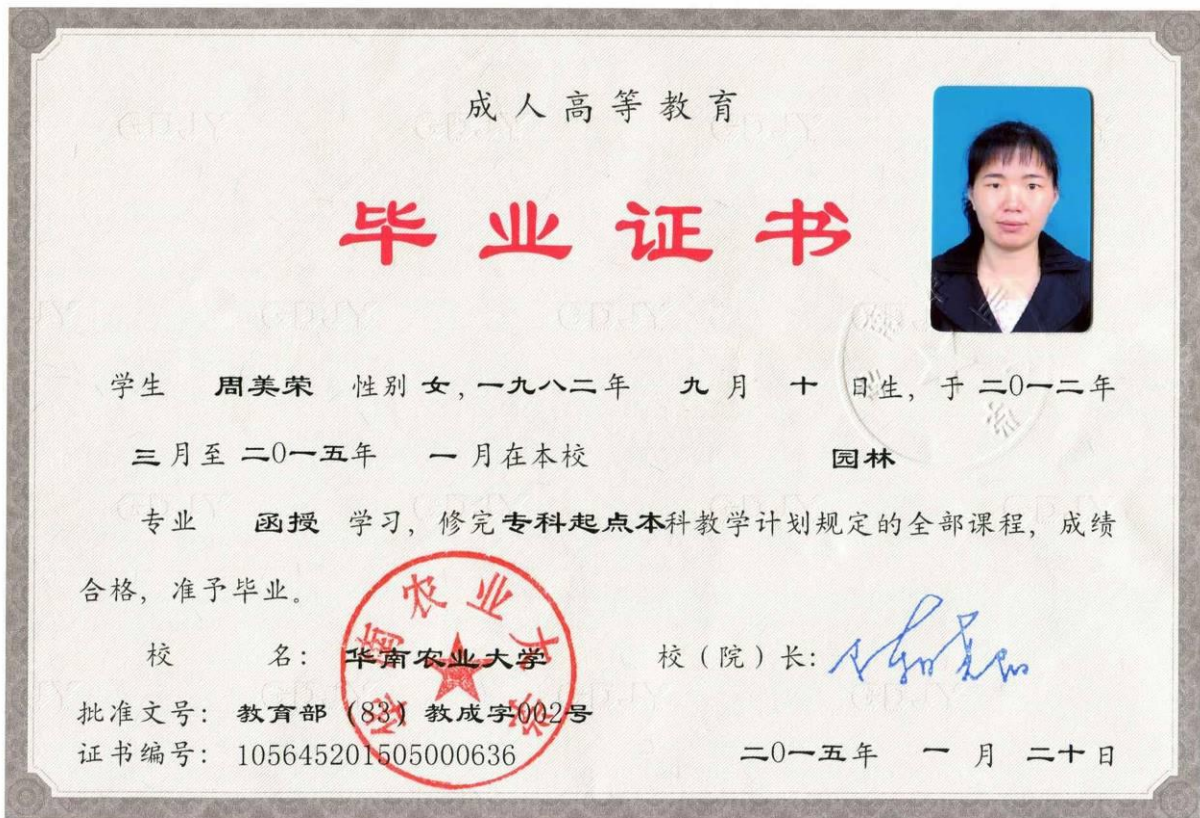 成人高等教育
毕业证书
学生 周美荣 性别 女，一九八二年 九月 十 日生，于 二0一二年
三月至 二0一五年 一月在本校 园林
专业 函授 学习，修完专科起点本科教学计划规定的全部课程，成绩
合格，准予毕业。
校 名：华南农业大学 校（院）长：
批准文号：教育部（83）教成字002号
证书编号：105645201505000636 二0一五年 一月 二十日
华南农业大学
GDJY